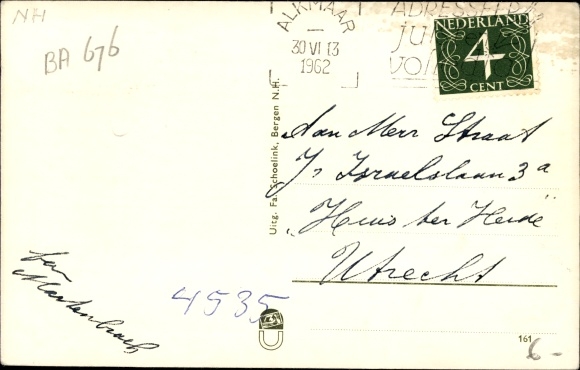 NH
BA 676
ALKMAAR
30 VI 13
1962
ADRESSEER
JUI
VOLL
NEDERLAND
4
CENT
Uitg. Fa. Schoelink, Bergen N.H.
Aan Mevr Straat
Js Israelslaan 3a
"Huis ter Heide"
Utrecht
fam
4535
161
6-